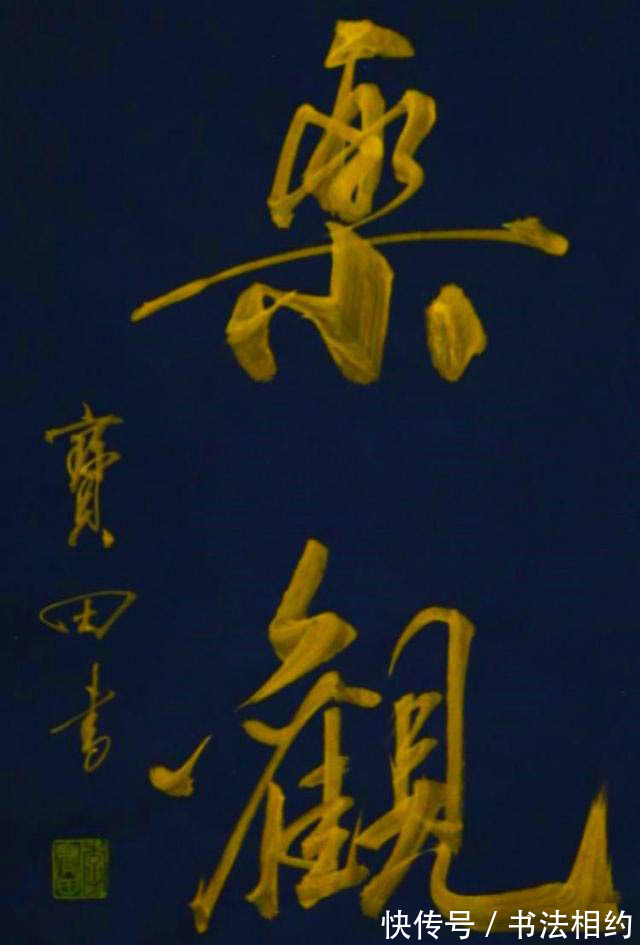 樂觀
寶田書
快传号 / 书法相约